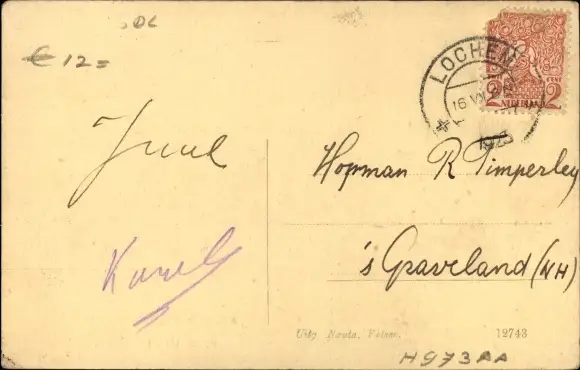 € 12=
LOCHEM
16 VII
2 CENT 2
NEDERLAND
1923
Juul
Karel
Hopman R Timperley
's Graveland (NH)
Uitg Nauta, Velsen. 12743
H973AA